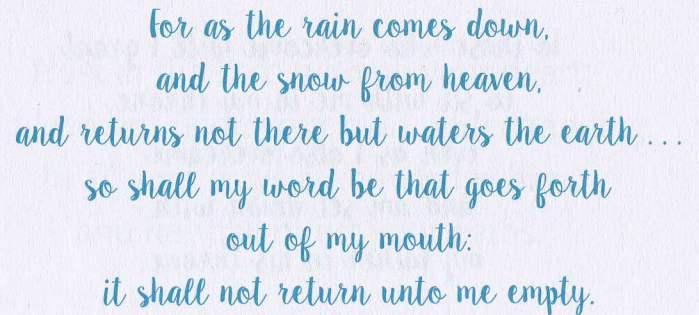 For as the rain comes down,
and the snow from heaven,
and returns not there but waters the earth ...
so shall my word be that goes forth
out of my mouth:
it shall not return unto me empty.